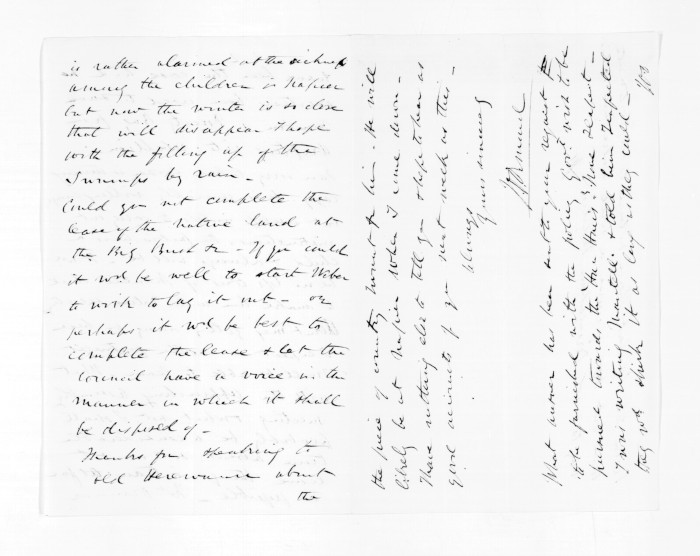 is rather alarmed at the sickness
among the children in Napier
but now the winter is so close
that will disappear I hope
with the filling up of the
Swamps by rain –
Could you not complete the
lease of the native land at
the Big Bush &c – If you could
it wd. be well to start Weber
to work to lay it out – or
perhaps it wd. be best to
complete the lease & let the
Council have a voice in the
manner in which it shall
be disposed of –
Thanks for speaking to
old Herewaka about
the
the piece of country I want for him. He will
likely be at Napier when I come down –
I have nothing else to tell you & hope to hear as
good accounts from you next week as this –
Always
Yours sincerely
JD Ormond
What answer has been sent to your request
to be furnished with the policy Govt. wish to be
pursued towards the Hau Haus? Have
I was writing Mantell & told him I expected
they wd. shirk it as long as they could –
JDO